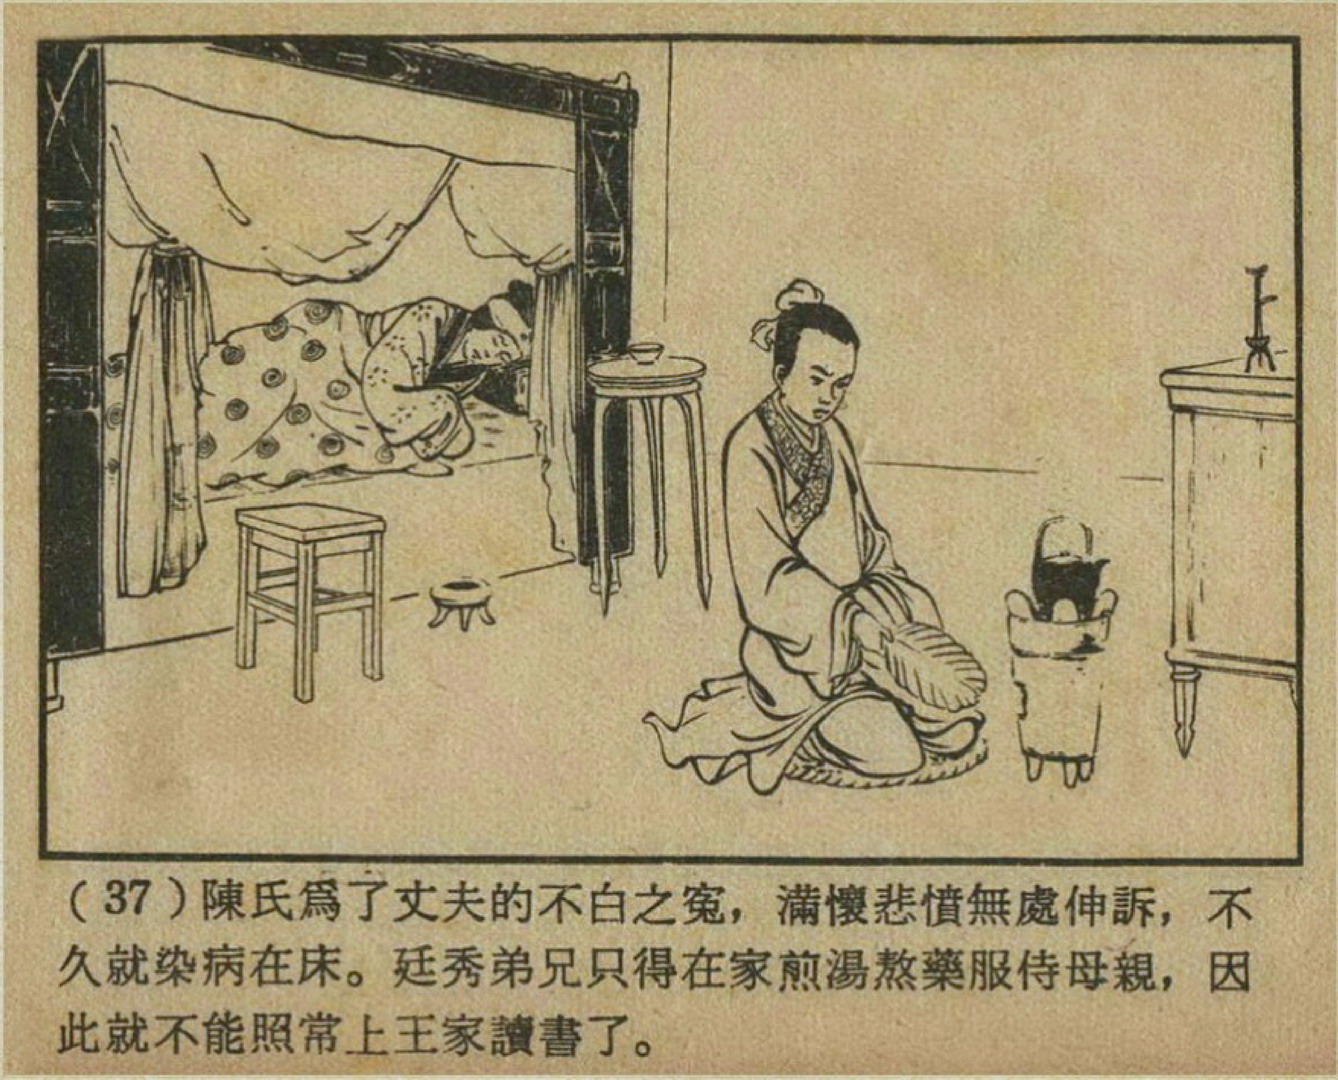 (37)陳氏爲了丈夫的不白之冤，滿懷悲憤無處伸訴，不
久就染病在床。廷秀弟兄只得在家煎湯熬藥服侍母親，因
此就不能照常上王家讀書了。